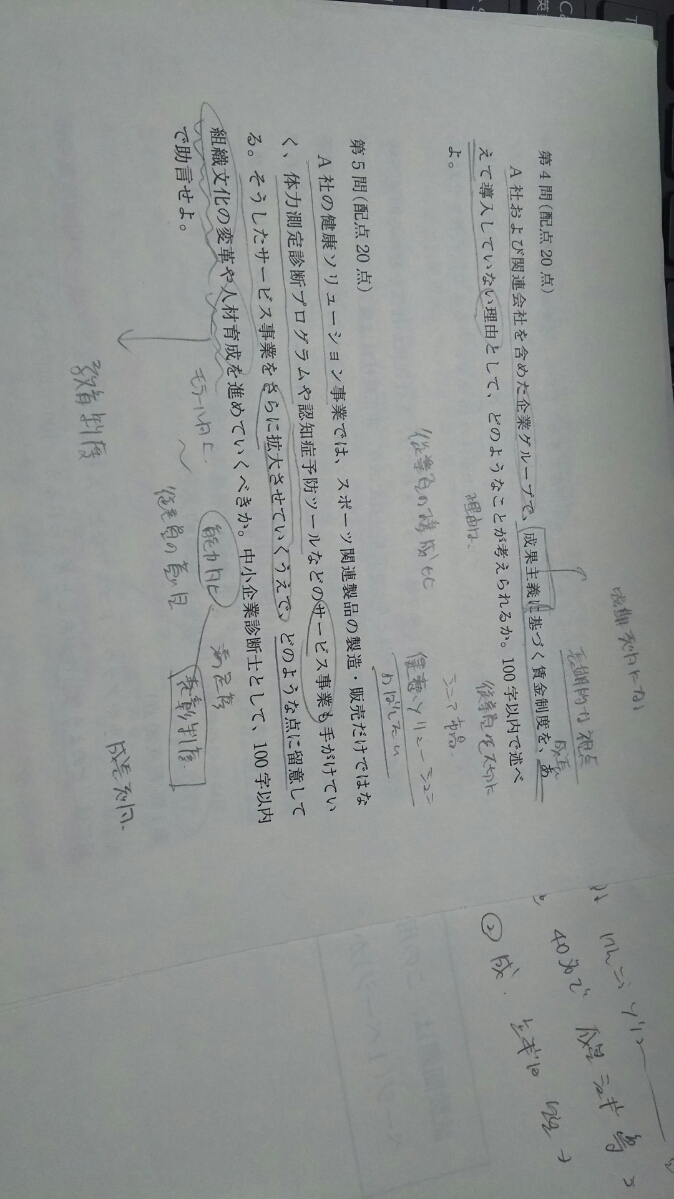 第4問(配点20点)
A社および関連会社を含めた企業グループで、成果主義に基づく賃金制度を、あ
えて導入していない理由として、どのようなことが考えられるか。100字以内で述べ
よ。
長期的な視点
成長
従業員を大切に
理由は、
シニア
従業員の構成比
健康ソリューション
第5問(配点20点)
A社の健康ソリューション事業では、スポーツ関連製品の製造・販売だけではな
く、体力測定診断プログラムや認知症予防ツールなどのサービス事業も手がけてい
る。そうしたサービス事業をさらに拡大させていくうえで、どのような点に留意して
組織文化の変革や人材育成を進めていくべきか。中小企業診断士として、100字以内
で助言せよ。
モラール向上
能力向上
満足度
従業員の
表彰制度
教育制度
40%で
② 成